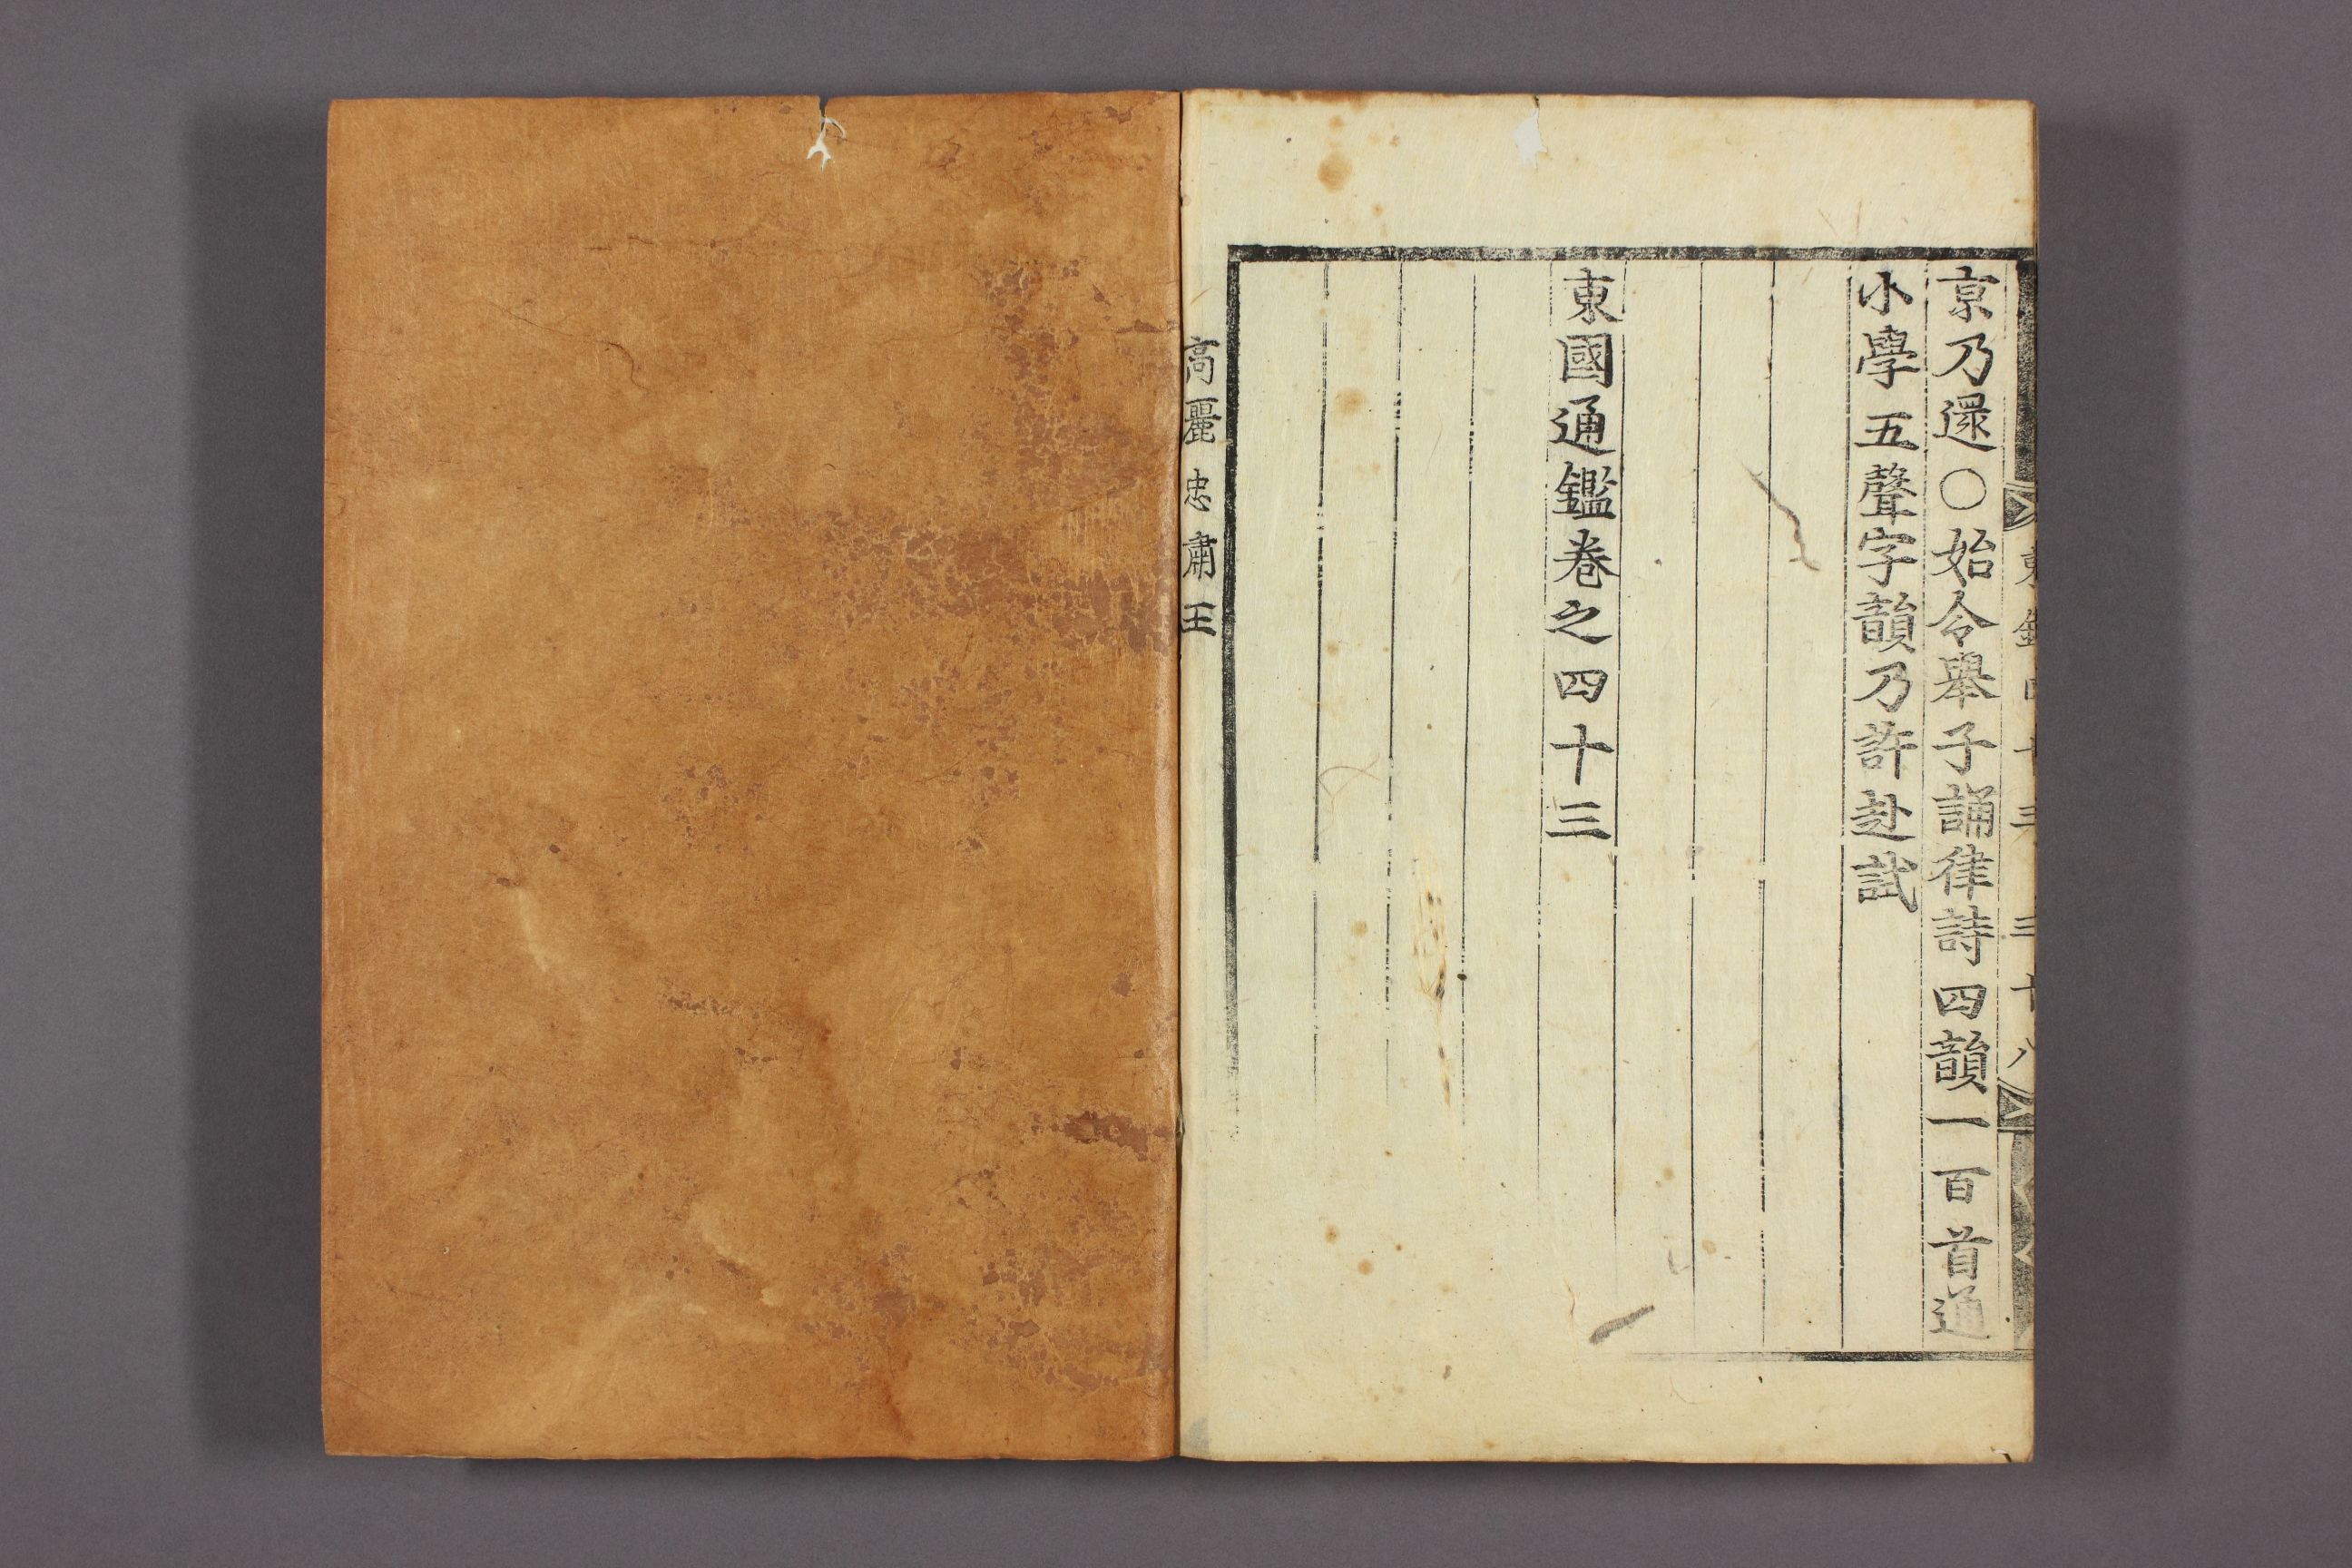 京乃還○始令舉子誦律詩四韻一百首通
小學五聲字韻乃許赴試
東國通鑑卷之四十三
高麗忠肅王